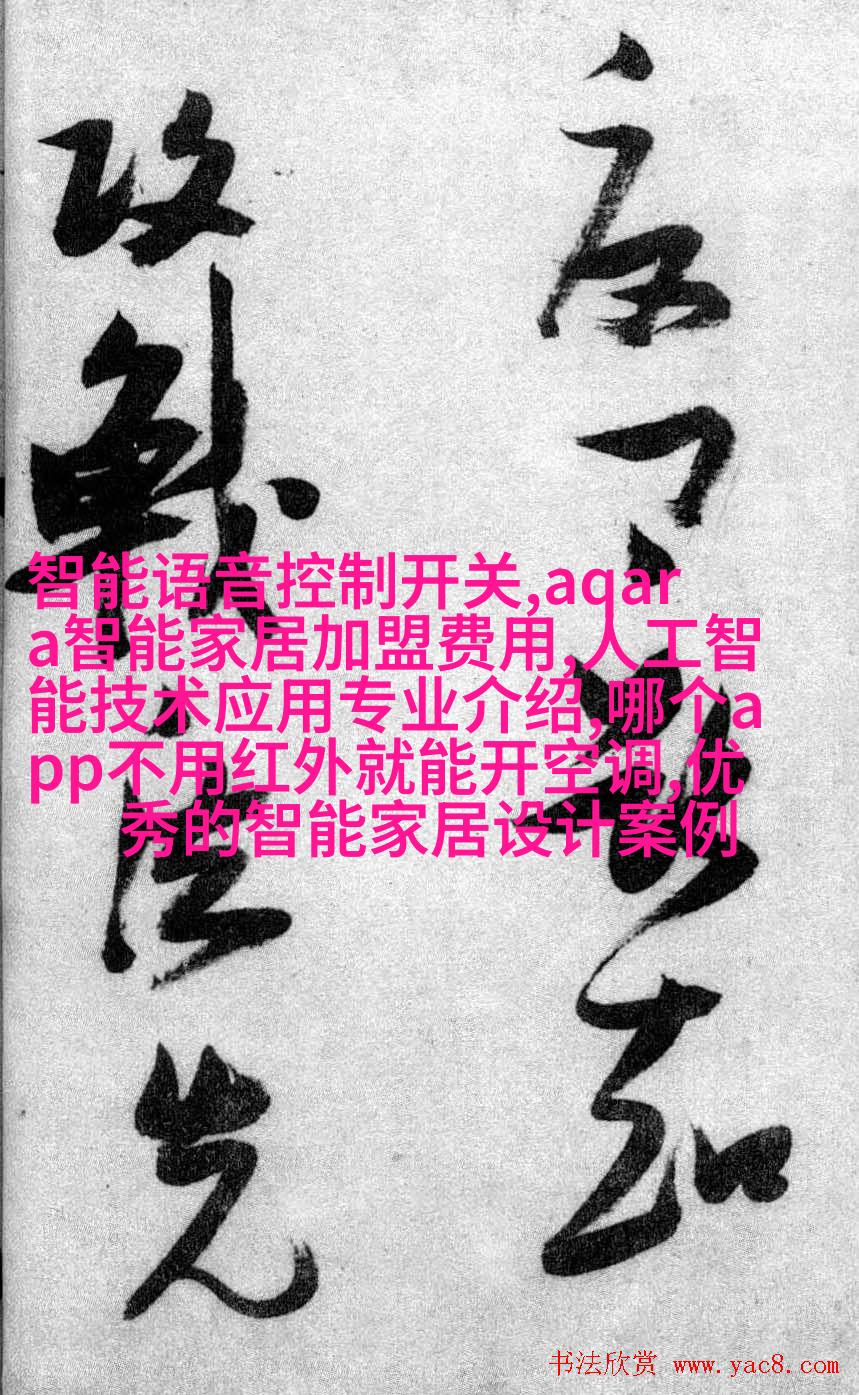 智能语音控制开关,aqar
a智能家居加盟费用,人工智
能技术应用专业介绍,哪个a
pp不用红外就能开空调,优
秀的智能家居设计案例
知
攻戰先
书法欣赏 www.yac8.com